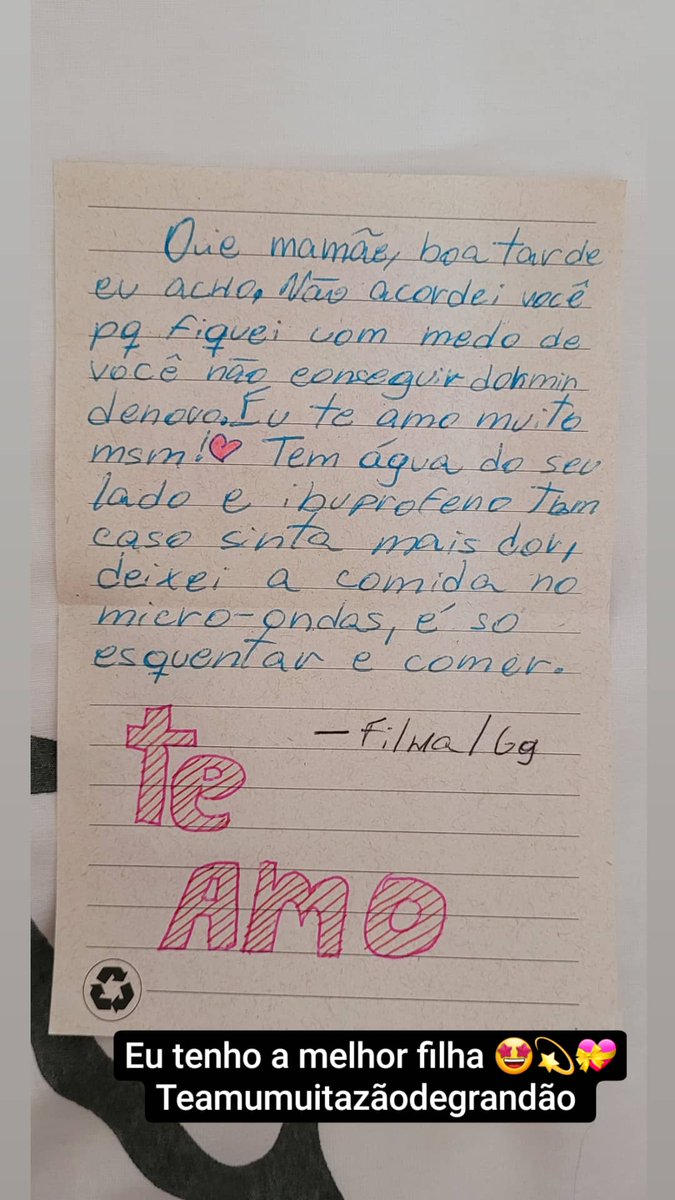 Oue mamãe, boa tarde
eu acho. Não acordei você
pq fiquei com medo de
você não conseguir dormin
denovo. Eu te amo muito
msm! Tem água do seu
lado e ibuprofeno tbm
caso sinta mais dor,
deixei a comida no
micro-ondas, é so
esquentar e comer.
— Filha/Gg
te
AMO
Eu tenho a melhor filha 🤩💫💝
Teamumuitazãodegrandão